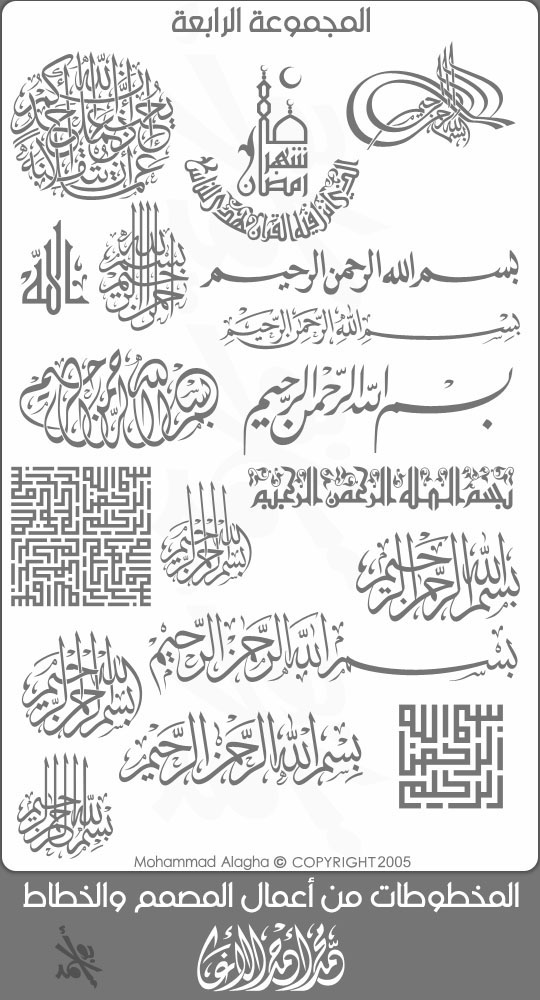 المجموعة الرابعة
بسم الله الرحمن الرحيم
شهر
رمضان
الذي انزل فيه القرآن هدى للناس
بسم الله الرحمن الرحيم
بسم الله الرحمن الرحيم
الله
بِسْمِ اللهِ الرَّحْمَنِ الرَّحِيمِ
بسم الله الرّحمن الرّحيم
بسم الله الرحمن الرحيم
بسم الله الرحمن الرحيم
بسم الله الرحمن الرحيم
بسم الله الرحمن الرحيم
بسم الله الرحمن الرحيم
بسم الله الرحمن الرحيم
بسم الله الرحمن الرحيم
بسم الله
الرحمن
الرحيم
بسم الله الرحمن الرحيم
Mohammad Alagha © COPYRIGHT 2005
المخطوطات من أعمال المصمم والخطاط
محمد أحمد الأغا